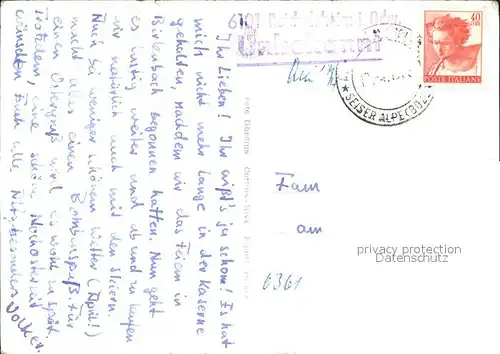 6101 Reichelsheim i. Odw.
Unbekannt
40
POSTE ITALIANE
SEISER ALPE (BOZ
Ihr Lieben! Ihr wißt's ja schon! Es hat
mich nicht mehr lange in der Kaserne
gehalten, nachdem wir das Feiern in
Birkenbach begonnen hatten. Nun geht
es lustig weiter und ab und zu laufen
wir natürlich auch mit den Skiern.
Auch bei weniger schönem Wetter (April!)
macht alles einen Bombenspaß. Für
einen Ostergruß wird es wohl zu spät.
Trotzdem, eine schöne Nachosterzeit
wünscht Euch alle, Nitz besonders
Volker.
Foto Ghedina
Fam
am
6361
privacy protection
Datenschutz